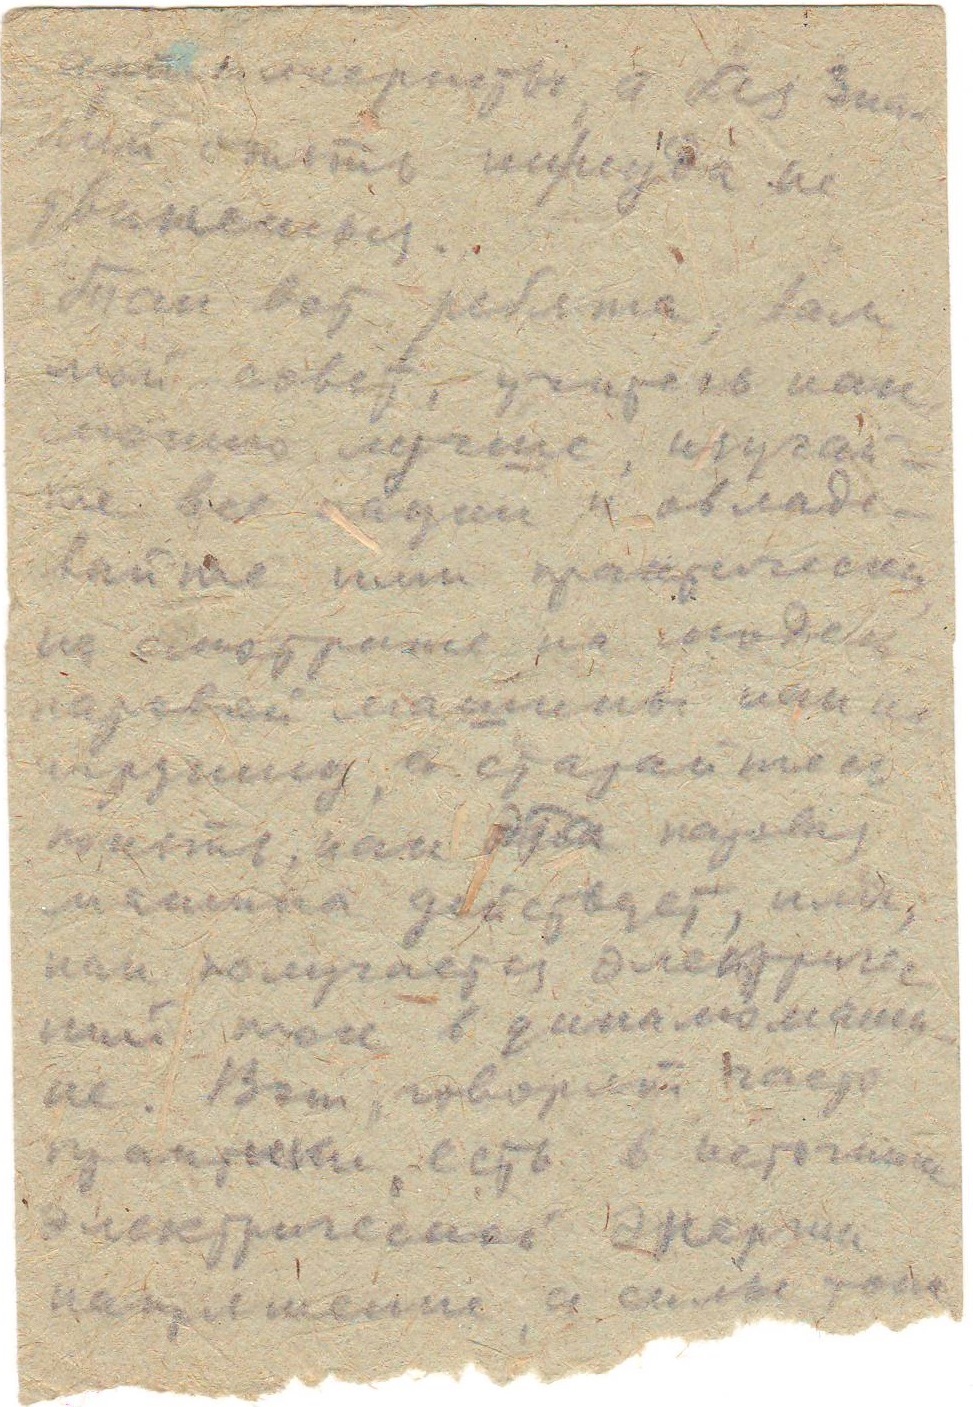 а без зна-
ний опять никуда не
движешься..
Так вот, ребята, вам
мой совет, учитесь как
можно лучше, изучай-
те все науки и овладе-
вайте ими практически,
не смотрите на модель
паровой машины как на
игрушку, а старайтесь
понять, как эта паровая
машина действует, или,
как получается электриче
ский ток в динамомаши-
не. Вот, говорят часто
практики, есть в источнике
электрической энергии
напряжение, а силы тока